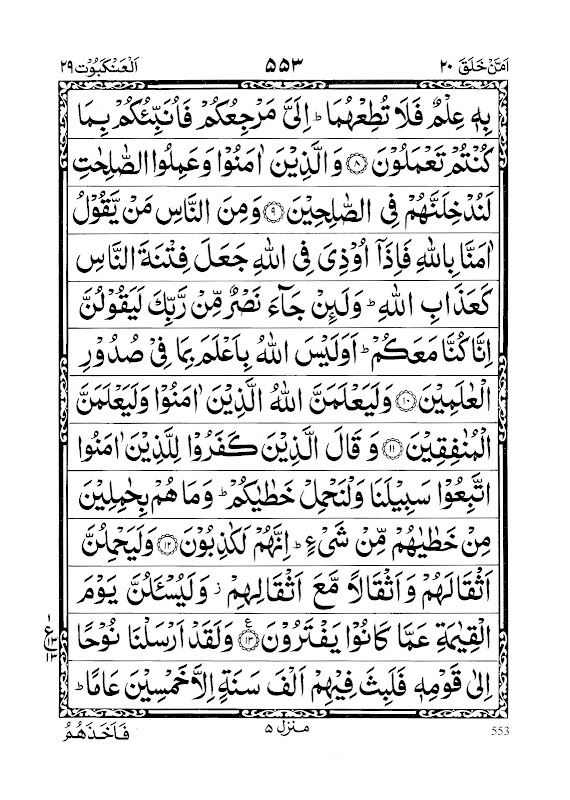 اَمَّنْ خَلَقَ ٢٠ ٥٥٣ اَلْعَنْكَبُوْت ٢٩
بِهٖ عِلْمٌ فَلَا تُطِعْهُمَا ؕ اِلَيَّ مَرْجِعُكُمْ فَاُنَبِّئُكُمْ بِمَا
كُنْتُمْ تَعْمَلُوْنَ ۝٨ وَالَّذِيْنَ اٰمَنُوْا وَعَمِلُوا الصّٰلِحٰتِ
لَنُدْخِلَنَّهُمْ فِي الصّٰلِحِيْنَ ۝٩ وَمِنَ النَّاسِ مَنْ يَّقُوْلُ
اٰمَنَّا بِاللّٰهِ فَاِذَاۤ اُوْذِيَ فِي اللّٰهِ جَعَلَ فِتْنَةَ النَّاسِ
كَعَذَابِ اللّٰهِ ؕ وَلَئِنْ جَآءَ نَصْرٌ مِّنْ رَّبِّكَ لَيَقُوْلُنَّ
اِنَّا كُنَّا مَعَكُمْ ؕ اَوَلَيْسَ اللّٰهُ بِاَعْلَمَ بِمَا فِيْ صُدُوْرِ
الْعٰلَمِيْنَ ۝١٠ وَلَيَعْلَمَنَّ اللّٰهُ الَّذِيْنَ اٰمَنُوْا وَلَيَعْلَمَنَّ
الْمُنٰفِقِيْنَ ۝١١ وَقَالَ الَّذِيْنَ كَفَرُوْا لِلَّذِيْنَ اٰمَنُوا
اتَّبِعُوْا سَبِيْلَنَا وَلْنَحْمِلْ خَطٰيٰكُمْ ؕ وَمَا هُمْ بِحٰمِلِيْنَ
مِنْ خَطٰيٰهُمْ مِّنْ شَيْءٍ ؕ اِنَّهُمْ لَكٰذِبُوْنَ ۝١٢ وَلَيَحْمِلُنَّ
اَثْقَالَهُمْ وَاَثْقَالًا مَّعَ اَثْقَالِهِمْ ؗ وَلَيُسْئَلُنَّ يَوْمَ
الْقِيٰمَةِ عَمَّا كَانُوْا يَفْتَرُوْنَ ۝١٣ؑ وَلَقَدْ اَرْسَلْنَا نُوْحًا
١ ع ١٣ ١٣
اِلٰى قَوْمِهٖ فَلَبِثَ فِيْهِمْ اَلْفَ سَنَةٍ اِلَّا خَمْسِيْنَ عَامًا ؕ
553 منزل ٥ فَاَخَذَهُمُ